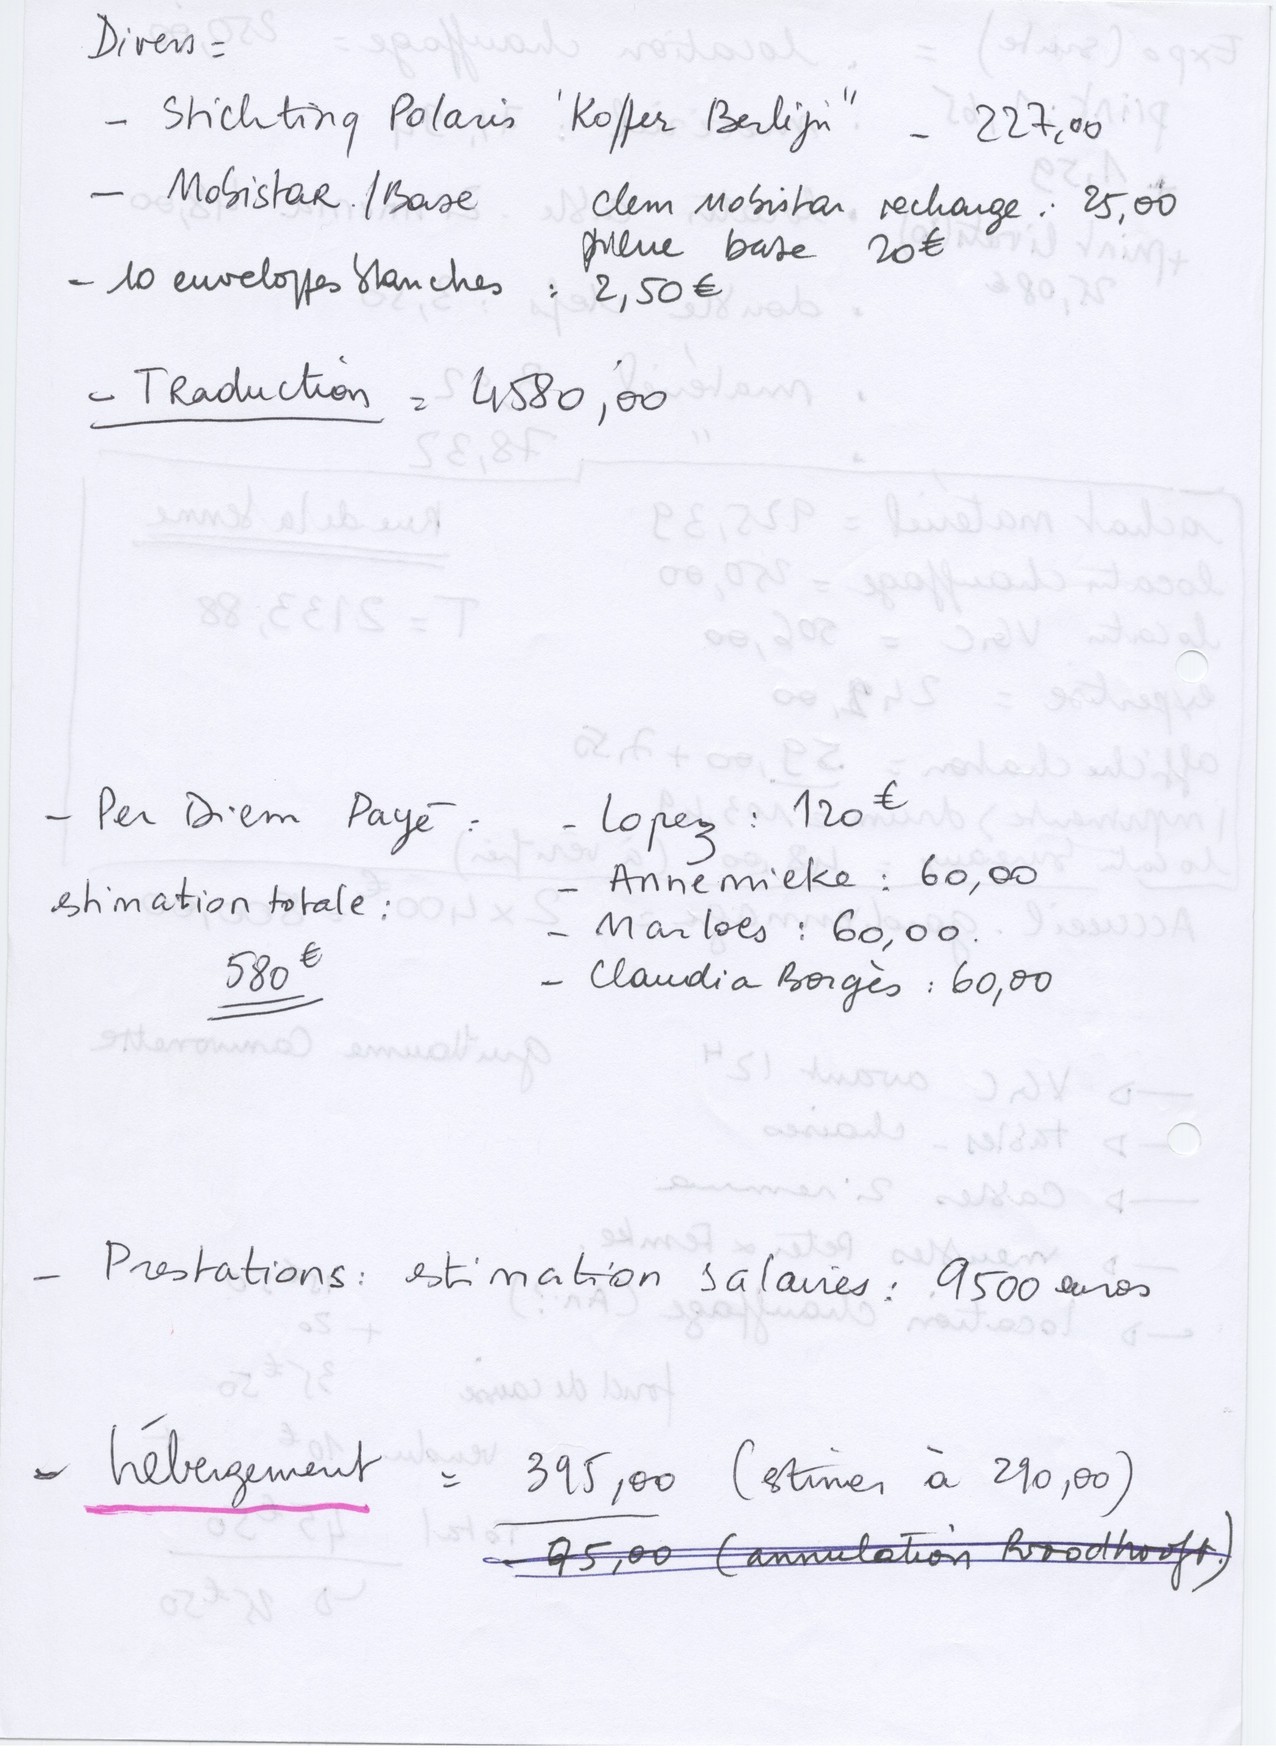 Divers =
- Stichting Polaris 'Koffer Berlijn" - 227,00
- Mobistar / Base clem mobistar recharge : 25,00
base 20€
- 10 enveloppes blanches : 2,50€
- Traduction = 4580,00
- Per Diem Payé : - Lopez : 120€
- Annemieke : 60,00
estimation totale :
- Marloes : 60,00.
580€
- Claudia Borgès : 60,00
- Prestations : estimation salaires : 9500 euros
- hébergement = 395,00 (estimer à 290,00)
- 95,00 (annulation Roodhooft.)